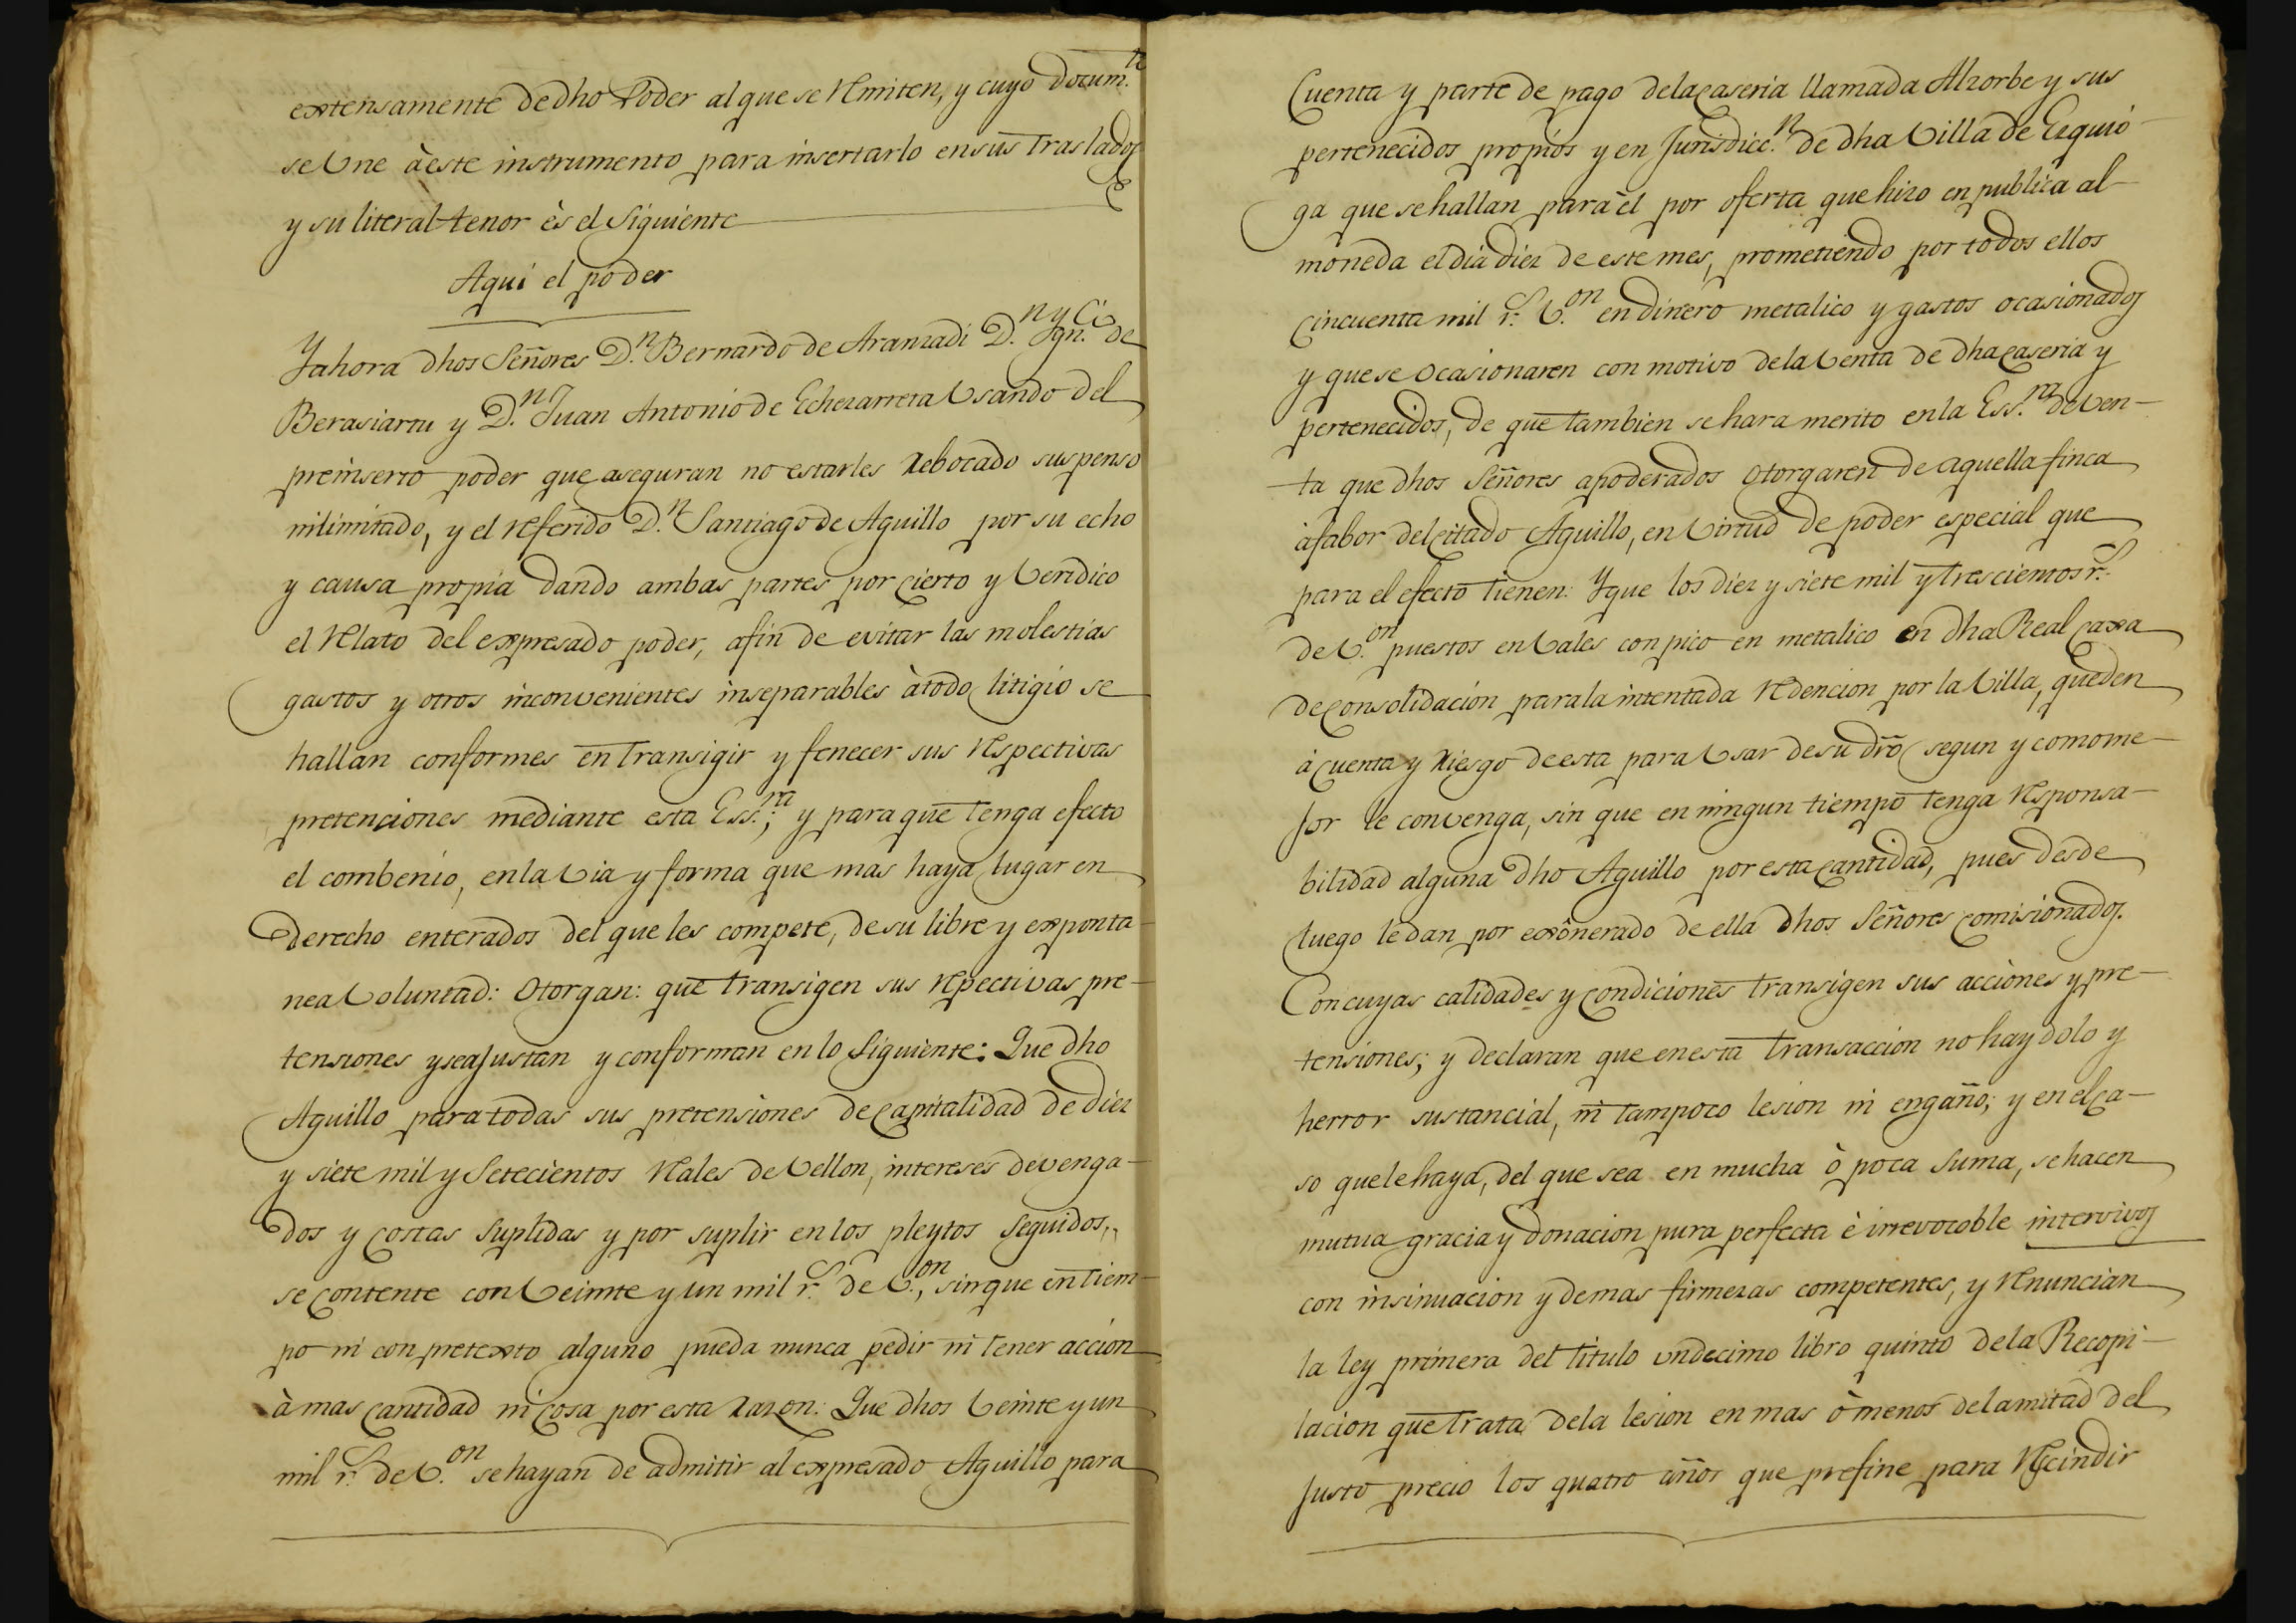 extensamente de dho Poder al que se Remiten, y cuyo docum.to
se Une à este instrumento para insertarlo en sus traslados
y su literal tenor ès el Siguiente
Aqui el poder
Y ahora dhos Señores D.n Bernardo de Aranzadi D.n Ygn.cio de
Berasiartu y D.n Juan Antonio de Echezarreta Usando del
preinserto poder que aseguran no estarles Rebocado suspenso
ni limitado, y el Referido D.n Santiago de Aguillo por su echo
y causa propia dando ambas partes por cierto y Veridico
el Relato del expresado poder, afin de evitar las molestias
gastos y otros inconvenientes inseparables à todo litigio se
hallan conformes en transigir y fenecer sus Respectivas
pretenciones mediante esta Ess.ra; y para que tenga efecto
el combenio, en la Via y forma que mas haya lugar en
derecho enterados del que les compete, de su libre y exponta-
nea Voluntad: Otorgan: que transigen sus Rpectivas pre-
tensiones y se ajustan y conforman en lo Siguiente: Que dho
Aguillo para todas sus pretensiones de capitalidad de diez
y siete mil y Setecientos Reales de Vellon, intereses devenga-
dos y costas Suplidas y por suplir en los pleytos Seguidos,,
se contente con Veinte y un mil r.s de V.on, sin que en tiem-
po ni con pretexto alguno pueda nunca pedir ni tener accion
à mas cantidad ni cosa por esta Razon: Que dhos Veinte y un
mil r.s de V.on se hayan de admitir al expresado Aguillo para
Cuenta y parte de pago de la caseria llamada Alzorbe y sus
pertenecidos propios y en Jurisdicc.n de dha Villa de Ezquio
ga que se hallan para èl por oferta que hizo en publica al-
moneda el dia diez de este mes, prometiendo por todos ellos
Cincuenta mil r.s V.on en dinero metalico y gastos ocasionados
y que se ocasionaren con motivo de la Venta de dha caseria y
pertenecidos, de que tambien se hara merito en la Ess.ra de Ven-
ta que dhos Señores apoderados Otorgaren de aquella finca
à fabor del citado Aguillo, en Virtud de poder especial que
para el efecto tienen: Y que los diez y siete mil y trescientos r.s
de V.on puestos en Vales con pico en metalico en dha Real caxa
de consolidacion para la intentada Redencion por la Villa, queden
à cuenta y Riesgo de esta para Usar de su dro segun y como me-
jor le convenga, sin que en ningun tiempo tenga Responsa-
bilidad alguna dho Aguillo por esta cantidad, pues desde
luego le dan por exônerado de ella dhos Señores comisionados.
Con cuyas calidades y condiciones transigen sus acciones y pre-
tensiones; y declaran que en esta transaccion no hay dolo y
herror sustancial, ni tampoco lesion ni engaño; y en el ca-
so que le haya, del que sea en mucha ò poca Suma, se hacen
mutua gracia y donacion pura perfecta è irrevocoble intervivos
con insinuacion y demas firmezas competentes, y Renuncian
la ley primera del titulo undecimo libro quinto de la Recopi-
lacion que trata de la lesion en mas ò menos de la mitad del
justo precio los quatro años que prefine para Rescindir